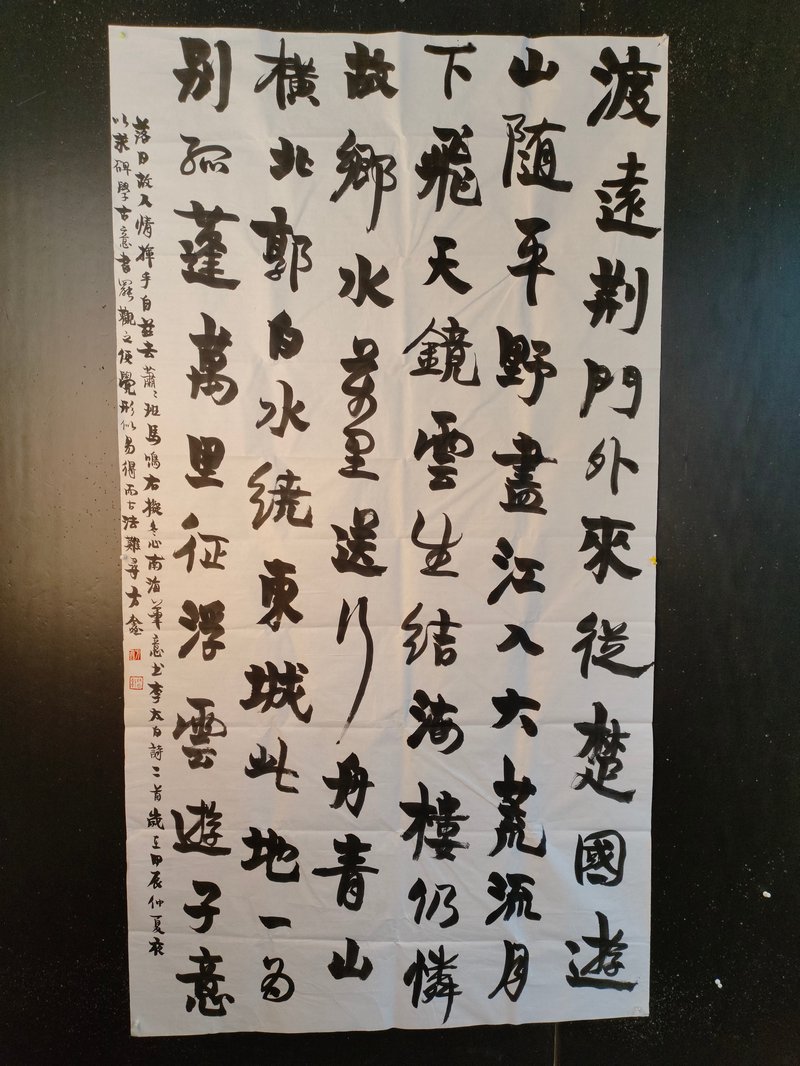 渡遠荆門外來從楚國遊
山随平野盡江入大荒流月
下飛天鏡雲生结海樓仍憐
故鄉水萬里送行舟青山
橫北郭白水繞東城此地一为
别孤蓬萬里征浮雲遊子意
落日故人情揮手自兹去蕭〻班馬鳴右擬心南海筆意书李太白詩二首歲在甲辰仲夏夜
以求碑學古意書罷觀之便覺形似易得而古法難尋方鑫